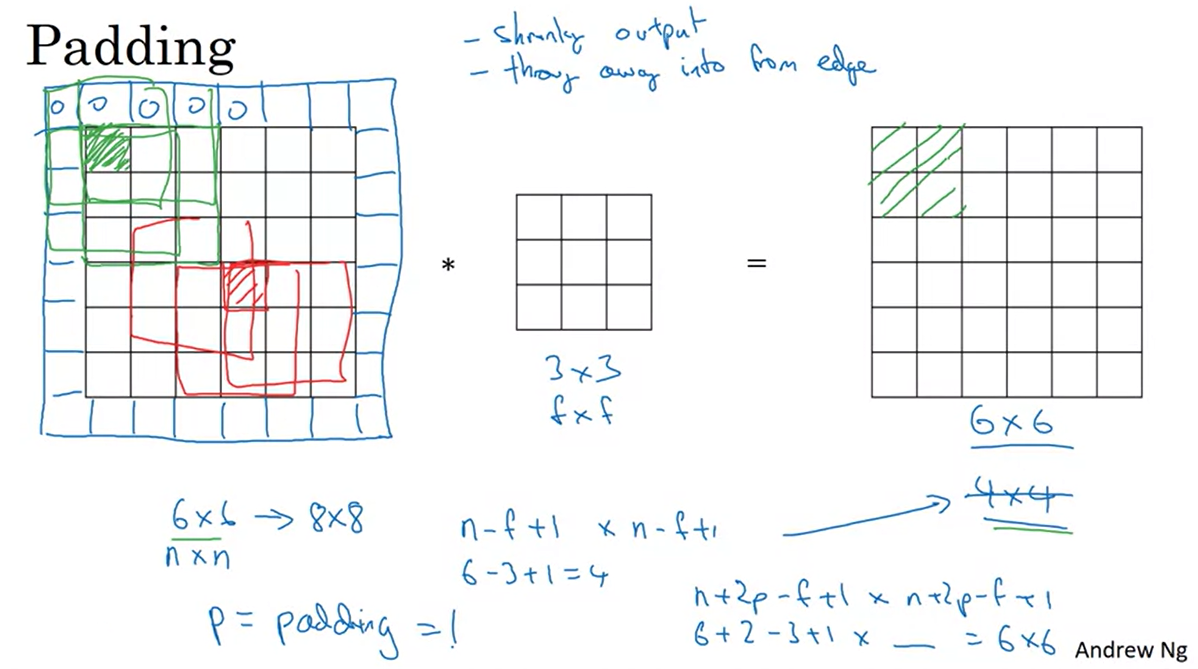 Padding
- shrinky output
- throw away info from edge
0 0 0 0 0
*
=
3 × 3
f × f
6 × 6
4 × 4
6 × 6 → 8×8
n × n
n - f + 1 × n - f + 1
6 - 3 + 1 = 4
p = padding = 1
n + 2p - f + 1 × n + 2p - f + 1
6 + 2 - 3 + 1 × __ = 6 × 6
Andrew Ng